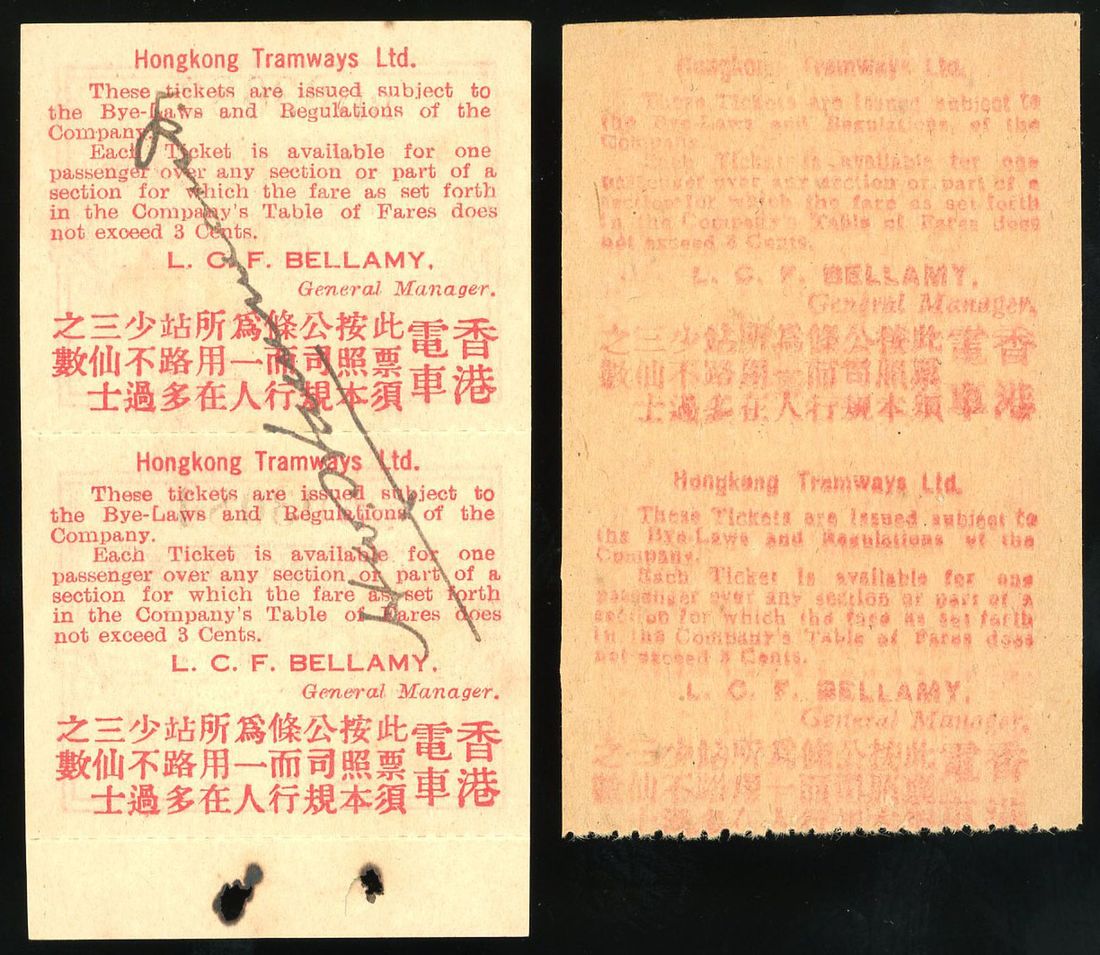 Hongkong Tramways Ltd.
These tickets are issued subject to
the Bye-Laws and Regulations of the
Company.
Each Ticket is available for one
passenger over any section or part of a
section for which the fare as set forth
in the Company's Table of Fares does
not exceed 3 Cents.
L. C. F. BELLAMY,
General Manager.
香港
電車
此票須
按照本
公司規
條而行
爲一人
所用在
站路多
少不過
三仙士
之數
Hongkong Tramways Ltd.
These tickets are issued subject to
the Bye-Laws and Regulations of the
Company.
Each Ticket is available for one
passenger over any section or part of a
section for which the fare as set forth
in the Company's Table of Fares does
not exceed 3 Cents.
L. C. F. BELLAMY,
General Manager.
香港
電車
此票須
按照本
公司規
條而行
爲一人
所用在
站路多
少不過
三仙士
之數
Hongkong Tramways Ltd.
These Tickets are Issued subject to
the Bye-Laws and Regulations of the
Company.
Each Ticket is available for one
passenger over any section or part of a
section for which the fare as set forth
in the Company's Table of Fares does
not exceed 3 Cents.
L. C. F. BELLAMY,
General Manager.
香港
電車
此票須
按照本
公司規
條而行
爲一人
所用在
站路多
少不過
三仙士
之數
Hongkong Tramways Ltd.
These Tickets are Issued subject to
the Bye-Laws and Regulations of the
Company.
Each Ticket is available for one
passenger over any section or part of a
section for which the fare as set forth
in the Company's Table of Fares does
not exceed 3 Cents.
L. C. F. BELLAMY,
General Manager.
香港
電車
此票須
按照本
公司規
條而行
爲一人
所用在
站路多
少不過
三仙士
之數